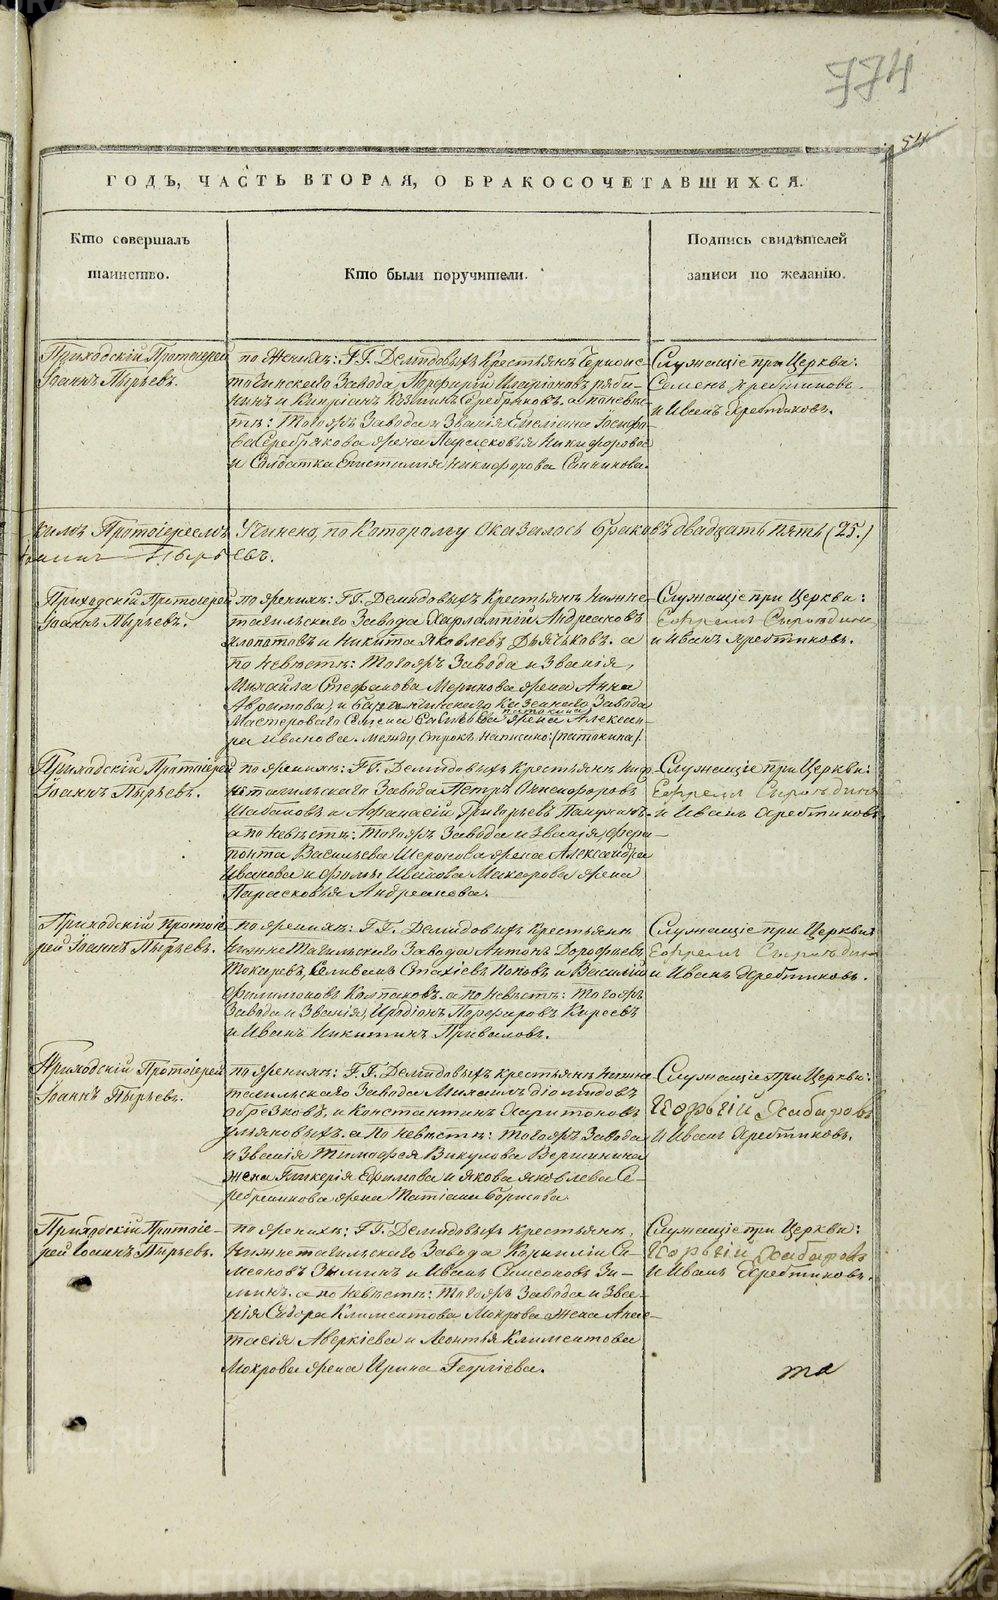 774
54
ГОДЪ, ЧАСТЬ ВТОРАЯ, О БРАКОСОЧЕТАВШИХСЯ.
Кто совершалъ
таинство.
Кто были поручители.
Подпись свидѣтелей
записи по желанію.
Приходскій Протоіерей
Іоаннъ Пырьевъ.
по Женихѣ: Г.Г. Демидовыхъ Крестьянъ Черноис-
точинскаго Завода, Порфирій Иларіоновъ Ряби-
нинъ и Кипріанъ Козминъ Серебряковъ. а по невѣс-
тѣ: Тогожъ Завода и Званія Емельяна Іосифо-
ва Серебрякова жена Парасковья Никифорова
и Солдатка Епистимія Никифорова Санникова.
Служащіе при Церкви:
Семенъ Хребтиковъ.
и Иванъ Хребтиковъ.
Протоіереемъ Учинено, по Которому Оказалось браковъ двадцать пять (25.)
евъ.
Приходскій Протоіерей
Іоаннъ Пырьевъ.
по женихѣ: Г.Г. Демидовыхъ Крестьянъ Нижне-
тагильскаго Завода Харлампій Андреяновъ
Лопатовъ и Никита Яковлевъ Дьячковъ. а
по Невѣстѣ: Тогожъ Завода и Званія,
Михаила Стефанова Меринова жена Анна
Авраамова, и Казеннаго Завода
Мастероваго Семена жена Алексан-
(патокина)
ра Иванова. Между Строкъ Написано: (патокина)
Служащіе при Церкви:
Ефремъ Сыропдинъ
и Иванъ Хребтиковъ.
Приходскій Протоіерей
Іоаннъ Пырьевъ.
по женихѣ: Г.Г. Демидовыхъ Крестьянъ Ниж-
нетагильскаго Завода Петръ Онисифоровъ
Шабановъ и Афанасій Григорьевъ
а по Невѣстѣ: Тогожъ Завода и Званія, Фера-
понта Васильева жена Александра
Иванова и Фомы Иванова Макарова жена
Парасковья Андреянова.
Служащіе при Церкви:
Ефремъ
и Иванъ Хребтиковъ.
Приходскій Протоіе-
рей Іоаннъ Пырьевъ.
по женихѣ: Г.Г. Демидовыхъ Крестьянъ
Нижнетагильскаго Завода Антонъ Дорофѣевъ
Токаревъ, Селиванъ Стахіевъ Поповъ и Василій
Филимоновъ Колпаковъ. а по Невѣстѣ: Тогожъ
Завода и Званія, Иродіонъ Порфировъ Киреевъ
и Иванъ Никитинъ Приваловъ.
Служащіе при Церкви:
Ефремъ
и Иванъ Хребтиковъ.
Приходскій Протоіерей
Іоаннъ Пырьевъ.
по женихѣ: Г.Г. Демидовыхъ крестьянъ Нижне-
тагильскаго Завода Михаилъ Діомидовъ
Обрезковъ, и Константинъ Харитоновъ
Ульяновыхъ. а по невѣстѣ: Тогожъ Завода
и Званія Тимофея Викулова Вершинина
жена Гликерія Ефимова и Якова Яковлева Се-
ребренникова жена Татіана Борисова.
Служащіе при Церкви:
Георгій Хабаровъ
и Иванъ Хребтиковъ.
Приходскій Протоіе-
рей Іоаннъ Пырьевъ.
по женихѣ: Г.Г. Демидовыхъ Крестьянъ,
Нижнетагильскаго Завода Корнилій Си-
меоновъ Зыминъ и Иванъ Симеоновъ Зи-
минъ. а по невѣстѣ: Тогожъ Завода и Зва-
нія Сидора Климентова Мокрова жена Анас-
тасія Аверкіева и Леонтья Климентова
Мокрова жена Ирина Георгіева.
Служащіе при Церкви:
Георгій Хабаровъ
и Иванъ Хребтиковъ.
METRIKI.GASO-URAL.RU